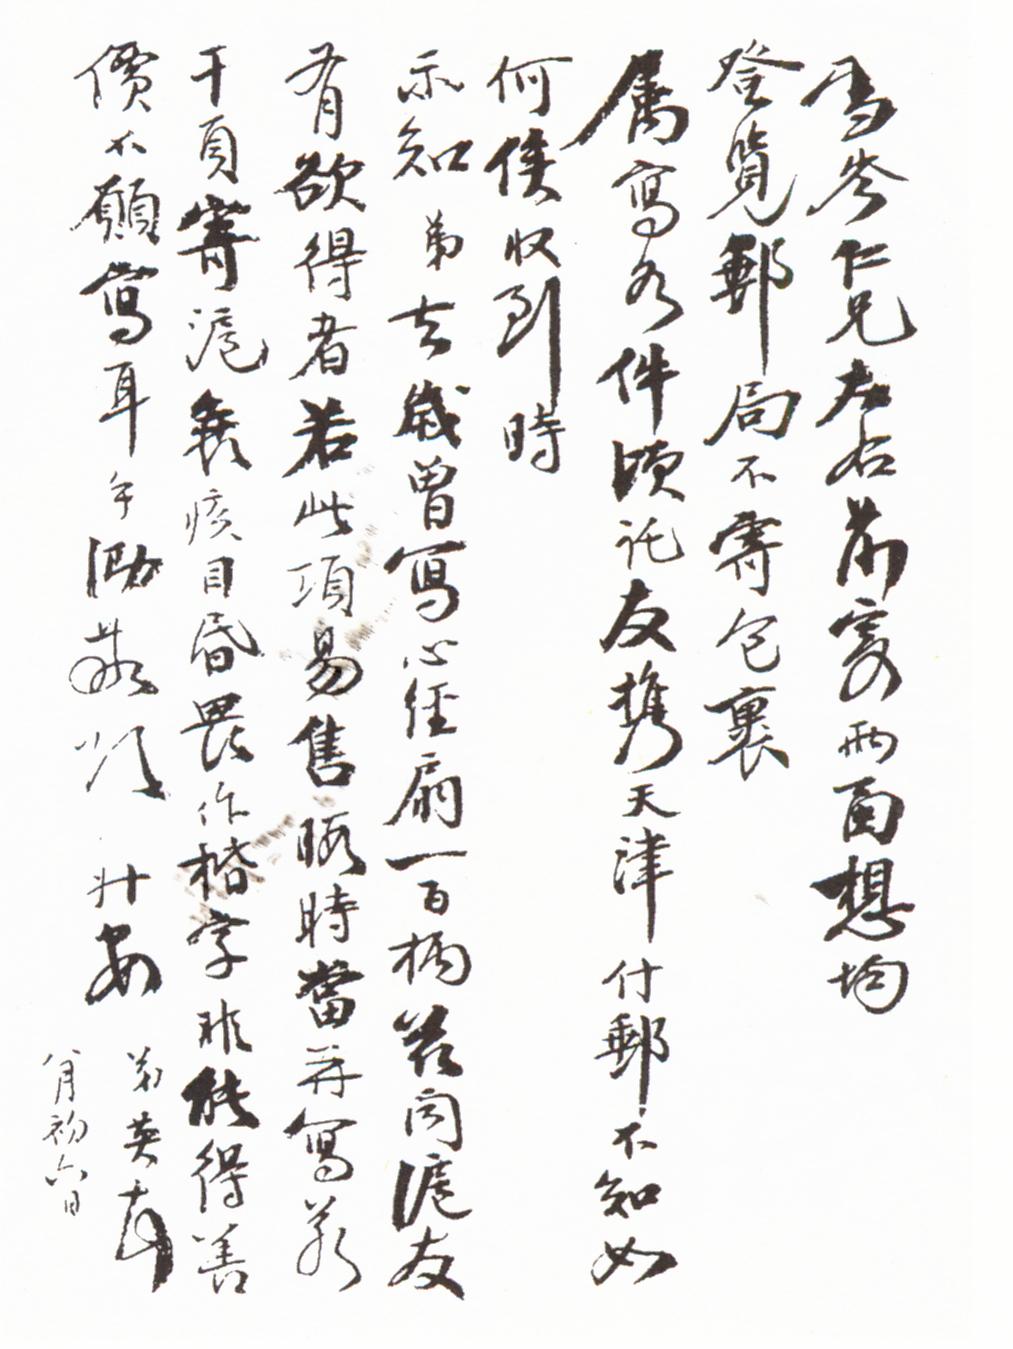 馬岑仁兄左右前寄兩函想均
登覽郵局不寄包裹
属寫各件頃託友攜天津付郵不知如
何俟收到時
示知弟去歲曾寫心經扇一百柄茲聞滬友
有欲得者若此項易售暇時當再寫若
干頁寄滬衰疾目昏畏作楷字非能得善
價不願寫耳手泐敬頌升安
弟英
八月初六日